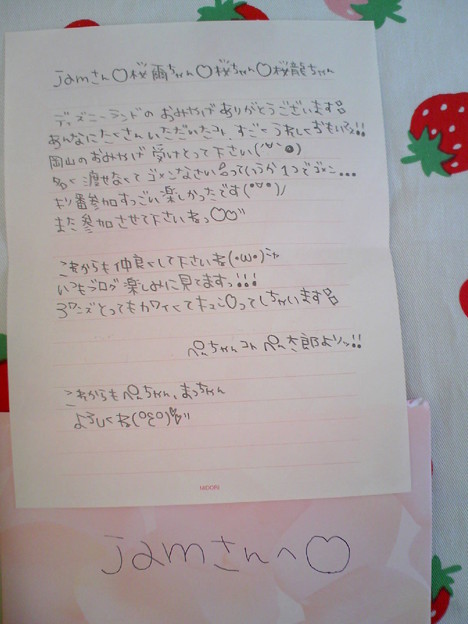 jamさん♡桜雨ちゃん♡桜ちゃん♡桜龍ちゃん
ディズニーランドのおみやげありがとうございます
あんなにたくさんいただいたコト、すごくうれしくおもいマス!!
岡山のおみやげ受けとって下さい
多く渡せなくてゴメンなさいるってゆうか1つでゴメン...
ド番参加すっごい楽しかったです(°∀°)/
また参加させて下さいねっ♡♡"
これからも仲良くして下さいね(・ω・)
いつもブログ楽しみに見てますっ!!!
3ワンズとってもカワイくてキュン♡ってしちゃいます
ぺぇちゃんコト ぺぇ太郎よりッ!!
これからもぺぇちゃん、まっちゃん
よろしくね
MIDORI
jamさんへ♡